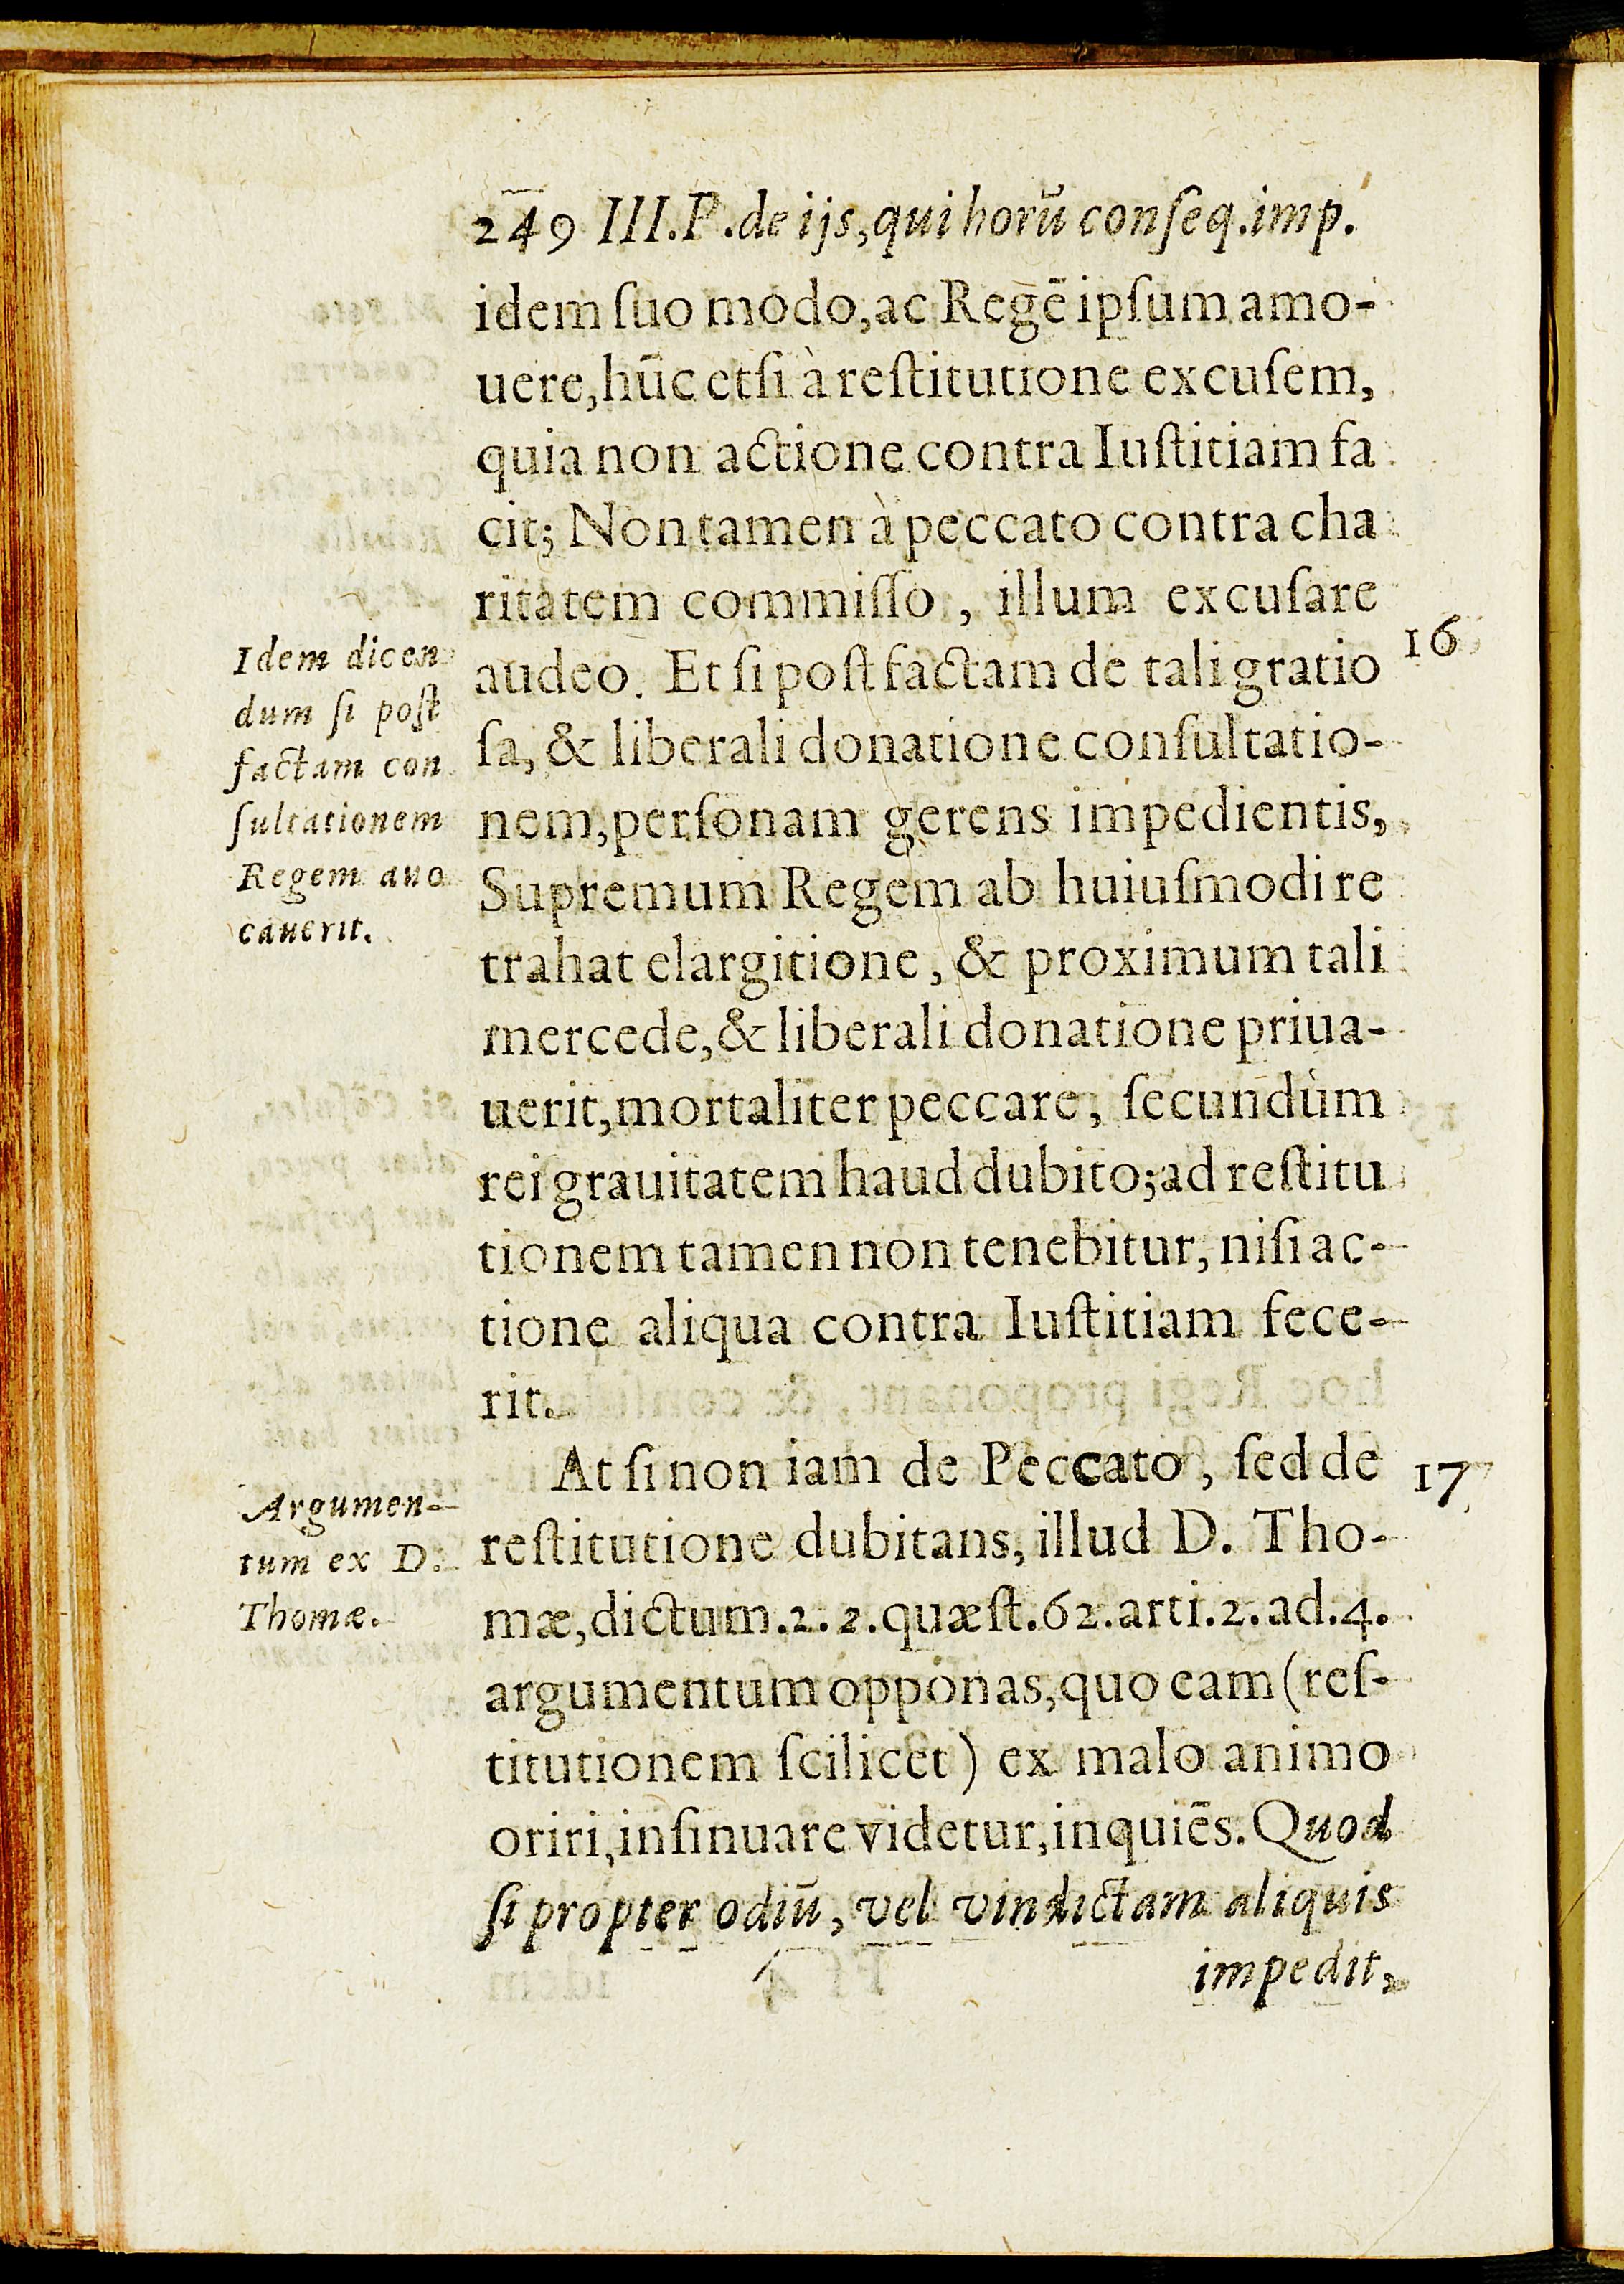 249 III.P.de ijs,qui horū conſeq.imp.
idem ſuo modo,ac Regē ipſum amo-
uere,hūc etſi à reſtitutione excuſem,
quia non actione contra Iuſtitiam fa
cit; Non tamen à peccato contra cha
ritatem commiſſo , illum excuſare
audeo. Et ſi poſt factam de tali gratio
ſa, & liberali donatione conſultatio-
nem,perſonam gerens impedientis,
Supremum Regem ab huiuſmodi re
trahat elargitione , & proximum tali
mercede,& liberali donatione priua-
uerit,mortaliter peccare, ſecundùm
rei grauitatem haud dubito;ad reſtitu
tionem tamen non tenebitur, niſi ac-
tione aliqua contra Iuſtitiam fece-
rit.
16
Idem dicen
dum ſi poſt
factam con
ſultationem
Regem auo
cauerit.
At ſi non iam de Peccato, ſed de
reſtitutione dubitans, illud D. Tho-
mæ,dictum.2.2.quæſt.62.arti.2.ad.4.
argumentum opponas,quo eam (reſ-
titutionem ſcilicet) ex malo animo
oriri,inſinuare videtur,inquiēs. Quod
ſi propter odiū, vel vindictam aliquis
impedit,
17
Argumen-
tum ex D.
Thomæ.